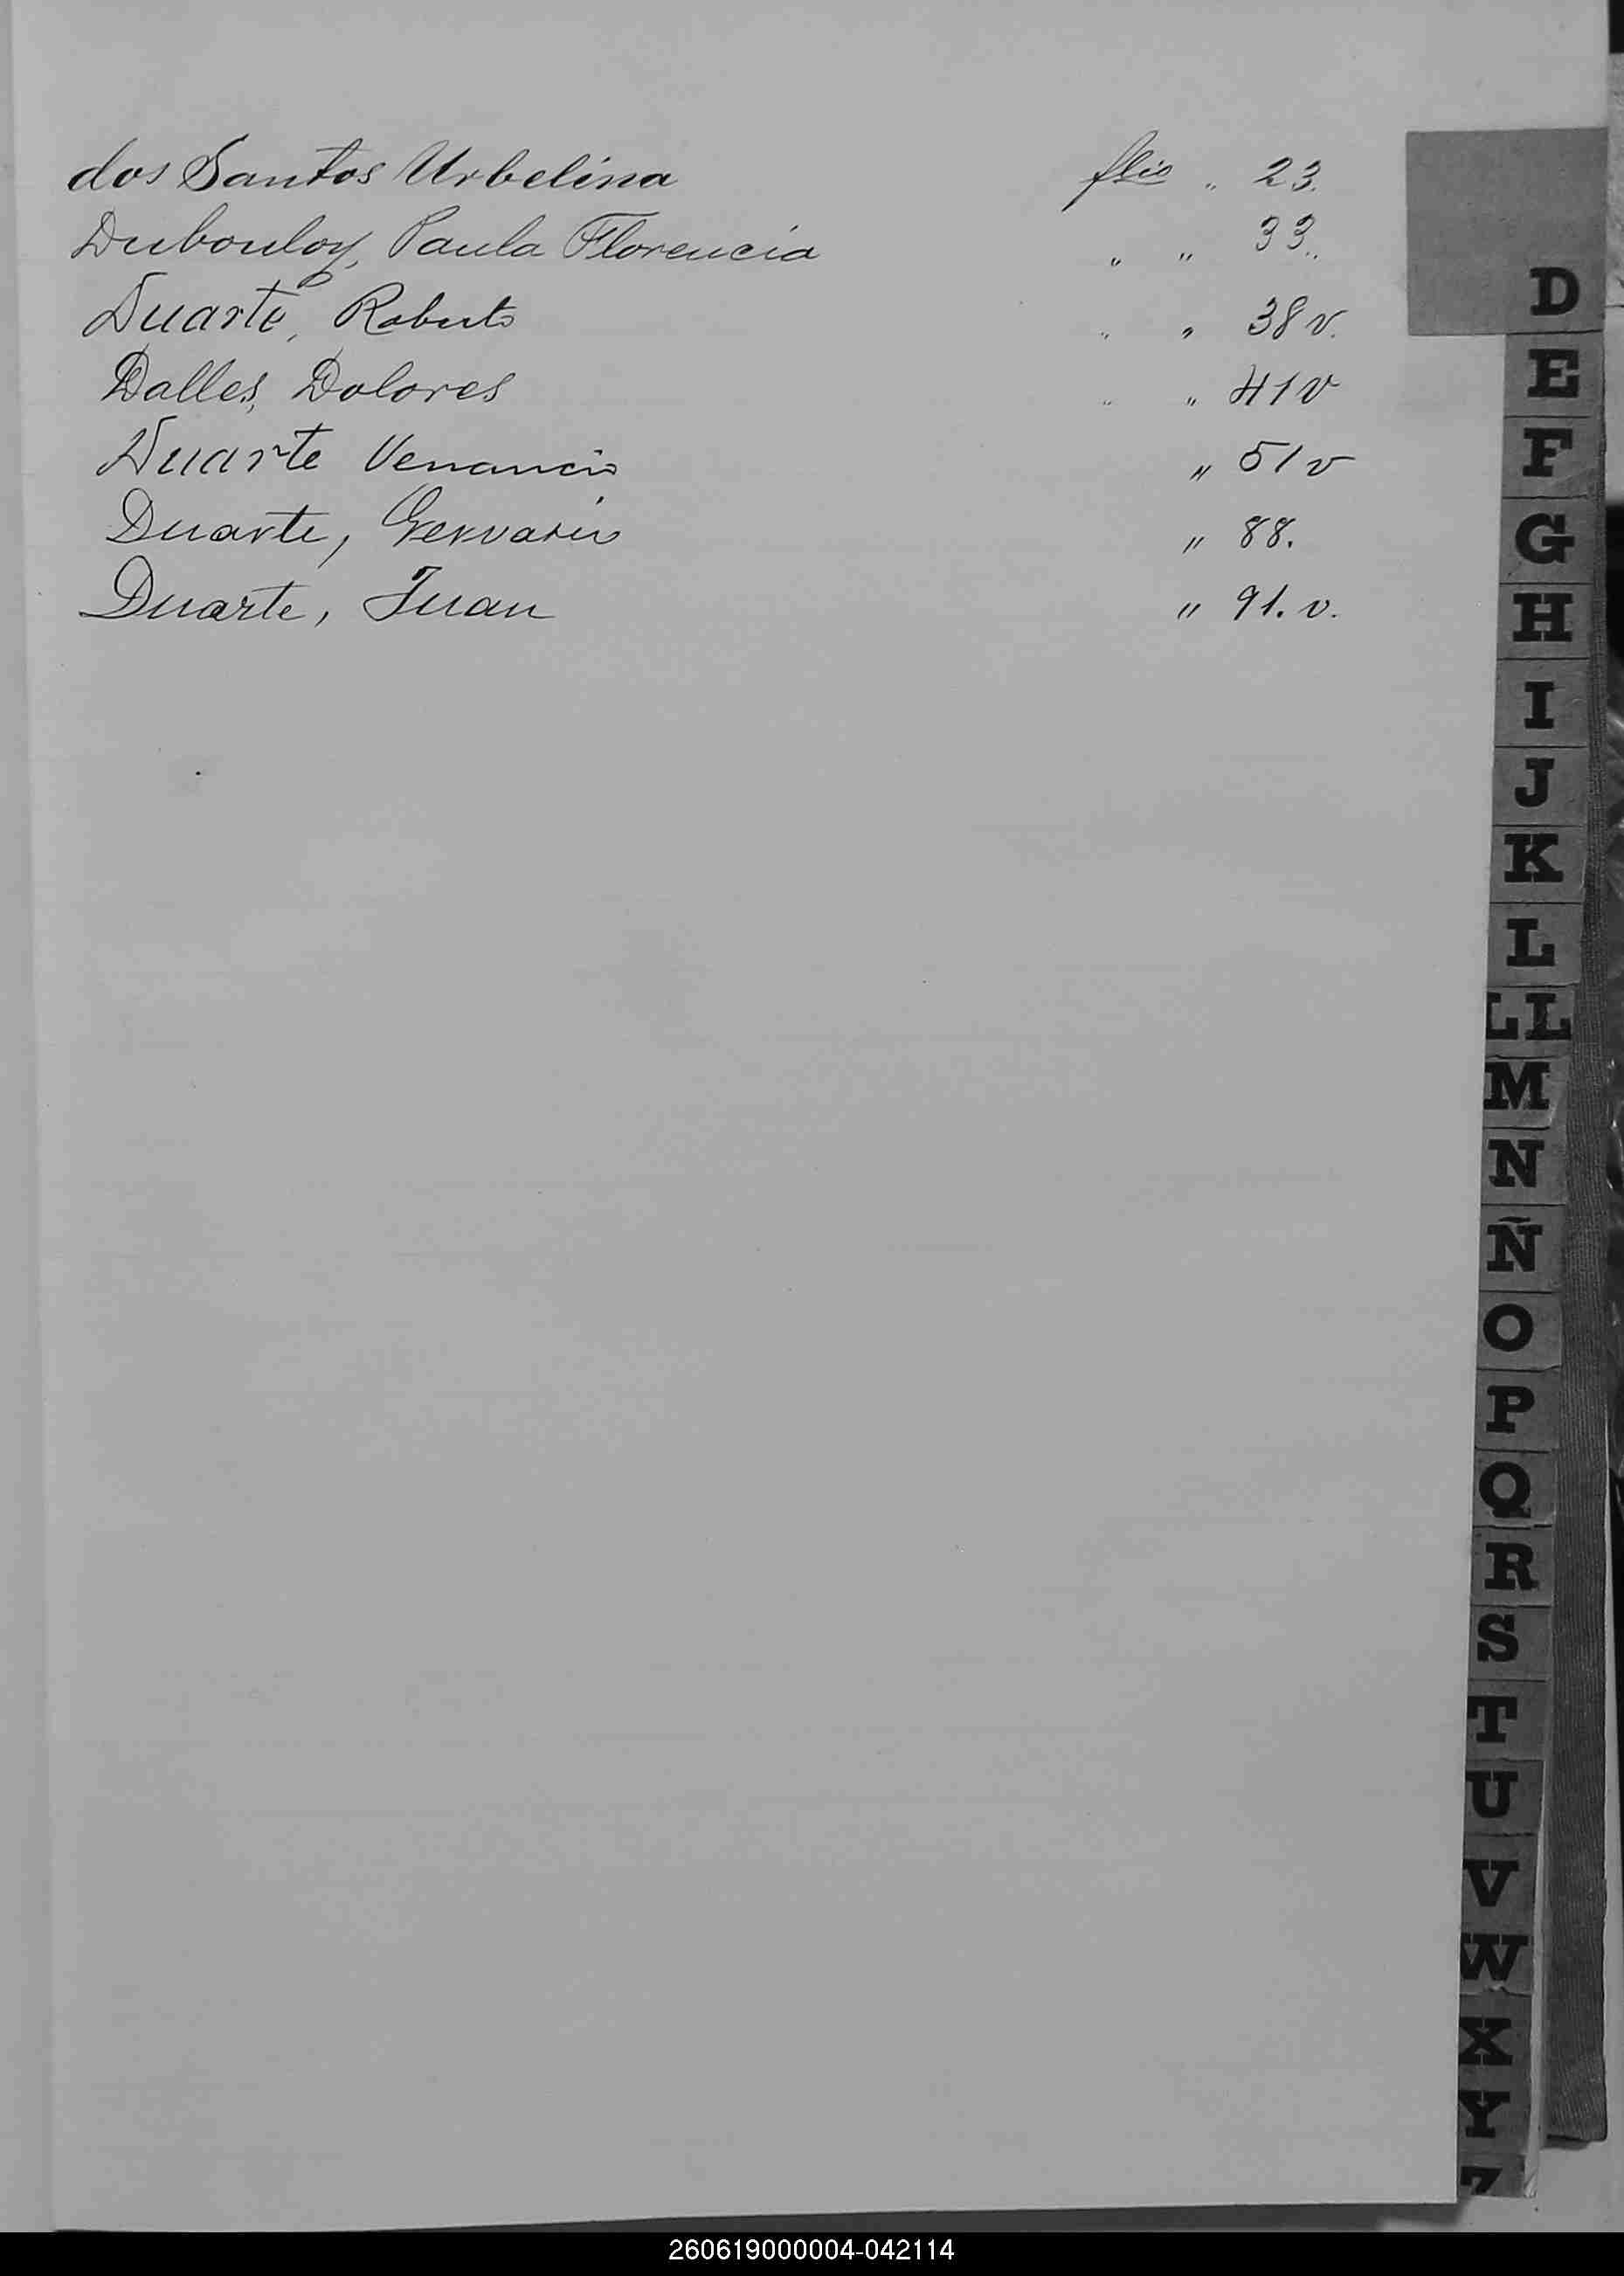 dos Santos Urbelina flio „ 23.
Dubouloy, Paula Florencia „ „ 33„
Duarte, Roberto „ „ 38 v.
Dalles, Dolores „ „ 41 v
Duarte Venancio „ 51 v
Duarte, Gervasio „ 88.
Duarte, Juan „ 91. v.
D
E
F
G
H
I
J
K
L
LL
M
N
Ñ
O
P
Q
R
S
T
U
V
W
X
Y
Z
260619000004-042114